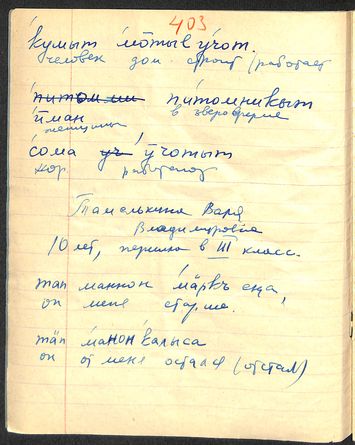 403
кумыт мӧтыв ӱчот.
человек дом строит (работает
питом ми питомникыт
ӣман в звероферме
женщины
сома уч ӱчотыт
хор. работают
Тамелькина Варя
Владимировна
10 лет, перешла в III класс.
тап маннон мӓркъ еҗа,
он меня старше.
тӓп манон калыса
он от меня остался (отстал)